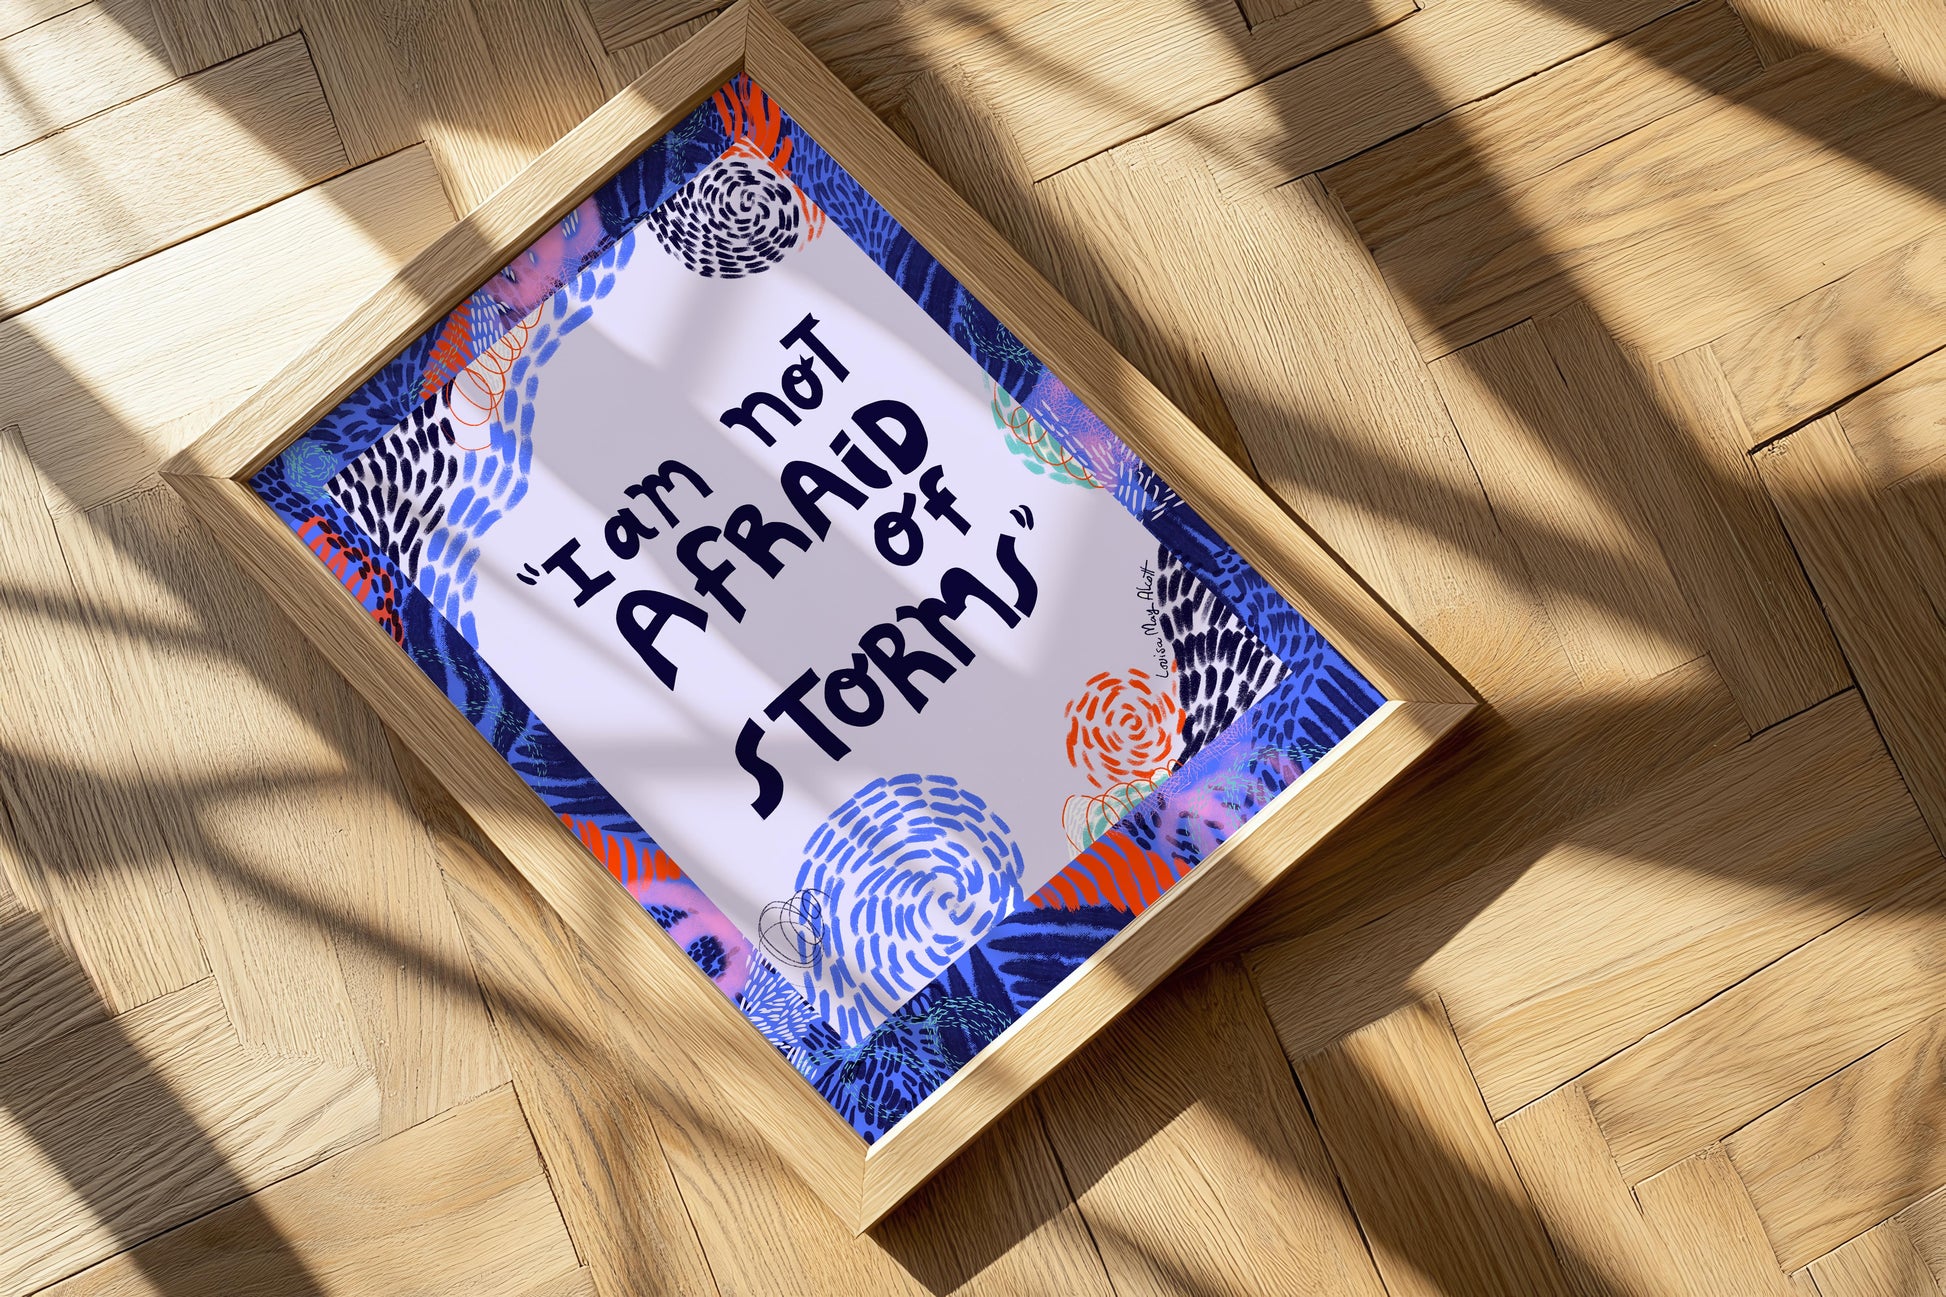 "I am not
AfRAiD of
STORMS"
Louisa May Alcott